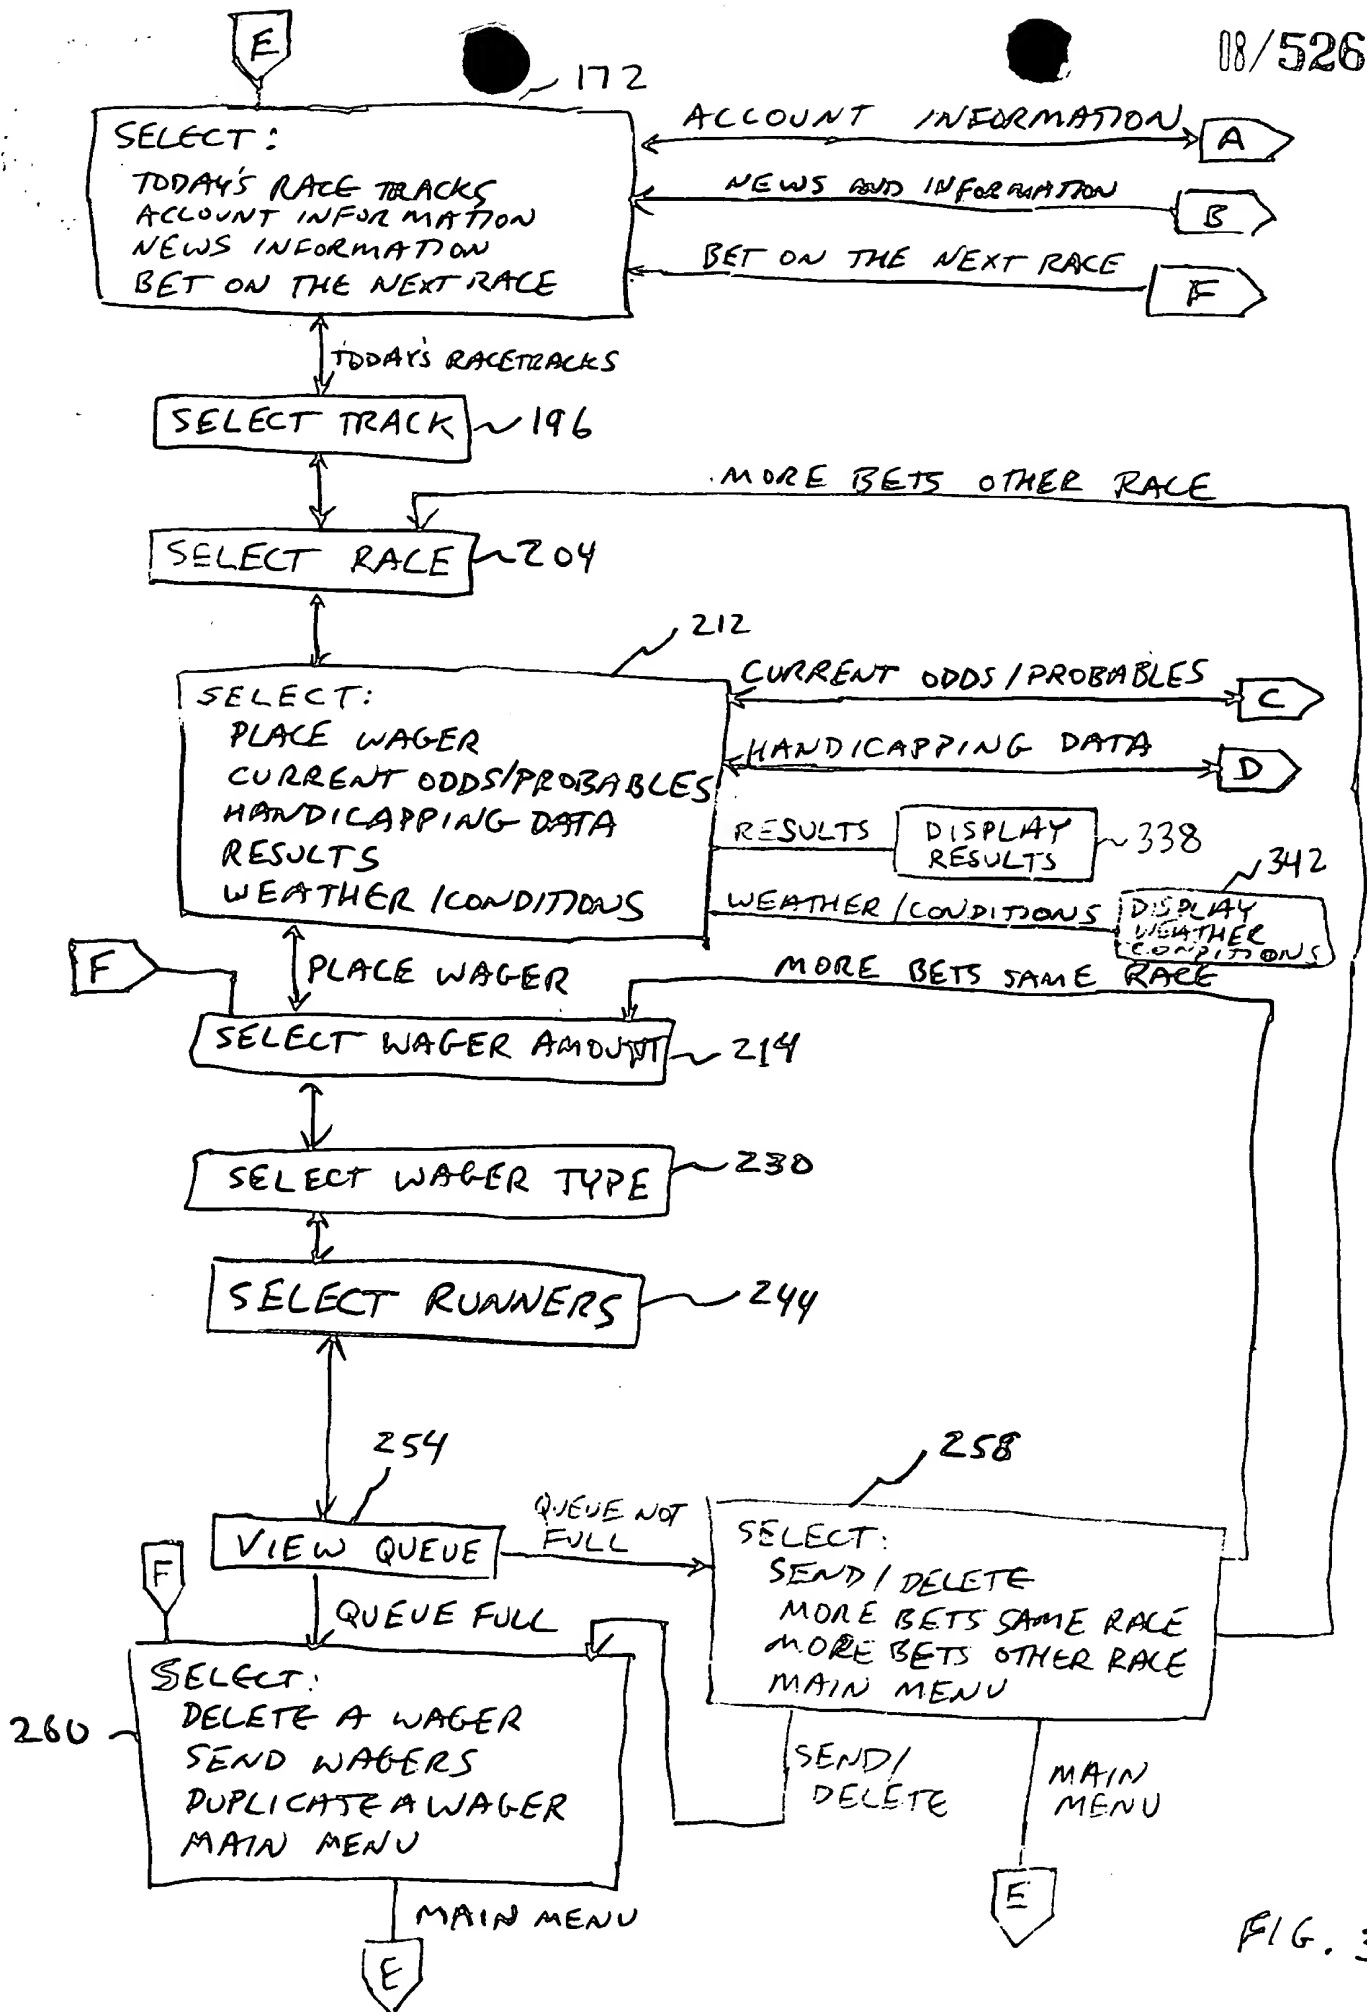 E
08/526
172
SELECT:
TODAY'S RACE TRACKS
ACCOUNT INFORMATION
NEWS INFORMATION
BET ON THE NEXT RACE
ACCOUNT INFORMATION
A
NEWS AND INFORMATION
B
BET ON THE NEXT RACE
F
TODAY'S RACETRACKS
SELECT TRACK
196
MORE BETS OTHER RACE
SELECT RACE
204
212
SELECT:
PLACE WAGER
CURRENT ODDS/PROBABLES
HANDICAPPING DATA
RESULTS
WEATHER/CONDITIONS
CURRENT ODDS/PROBABLES
C
HANDICAPPING DATA
D
RESULTS
DISPLAY
RESULTS
338
342
WEATHER/CONDITIONS
DISPLAY
WEATHER
CONDITIONS
F
PLACE WAGER
MORE BETS SAME RACE
SELECT WAGER AMOUNT
214
SELECT WAGER TYPE
230
SELECT RUNNERS
244
254
258
VIEW QUEUE
QUEUE NOT
FULL
SELECT:
SEND/DELETE
MORE BETS SAME RACE
MORE BETS OTHER RACE
MAIN MENU
F
QUEUE FULL
260
SELECT:
DELETE A WAGER
SEND WAGERS
DUPLICATE A WAGER
MAIN MENU
SEND/
DELETE
MAIN
MENU
E
MAIN MENU
E
FIG. 3